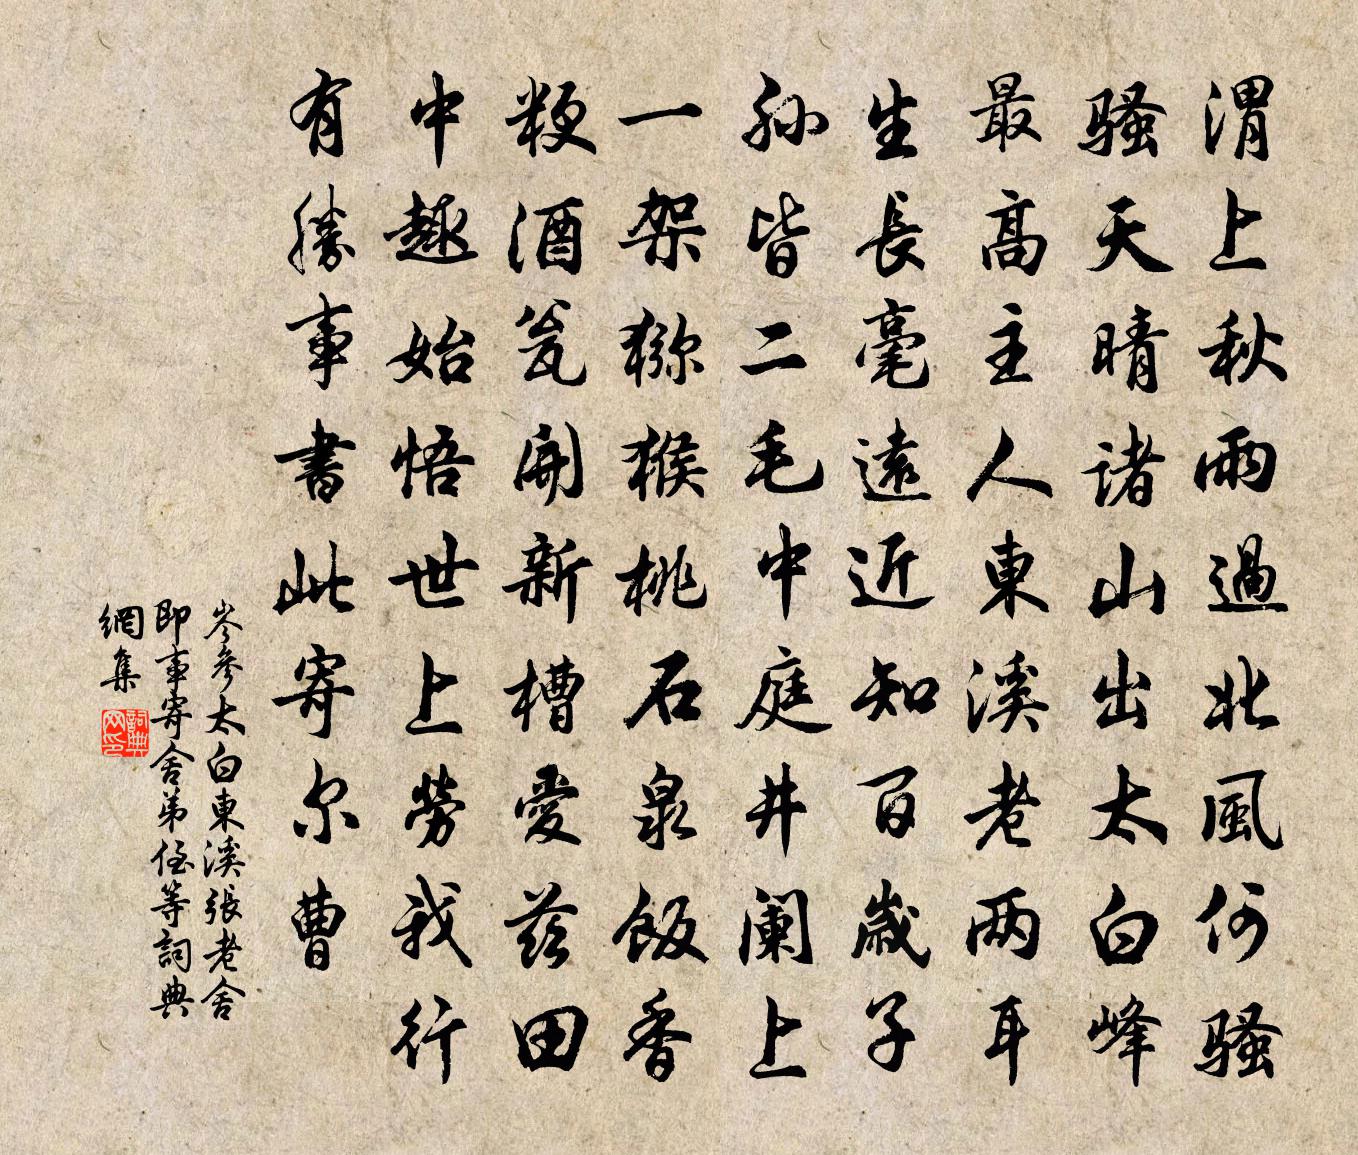 渭上秋雨過北風何騷
騷天晴諸山出太白峰
最高主人東溪老兩耳
生長毫遠近知百歲子
孫皆二毛中庭井闌上
一架獼猴桃石泉飯香
粳酒瓮開新槽愛茲田
中趣始悟世上勞我行
有勝事書此寄尔曹
岑參太白東溪張老舍
即事寄舍弟侄等詞典
網集
詞典
网印